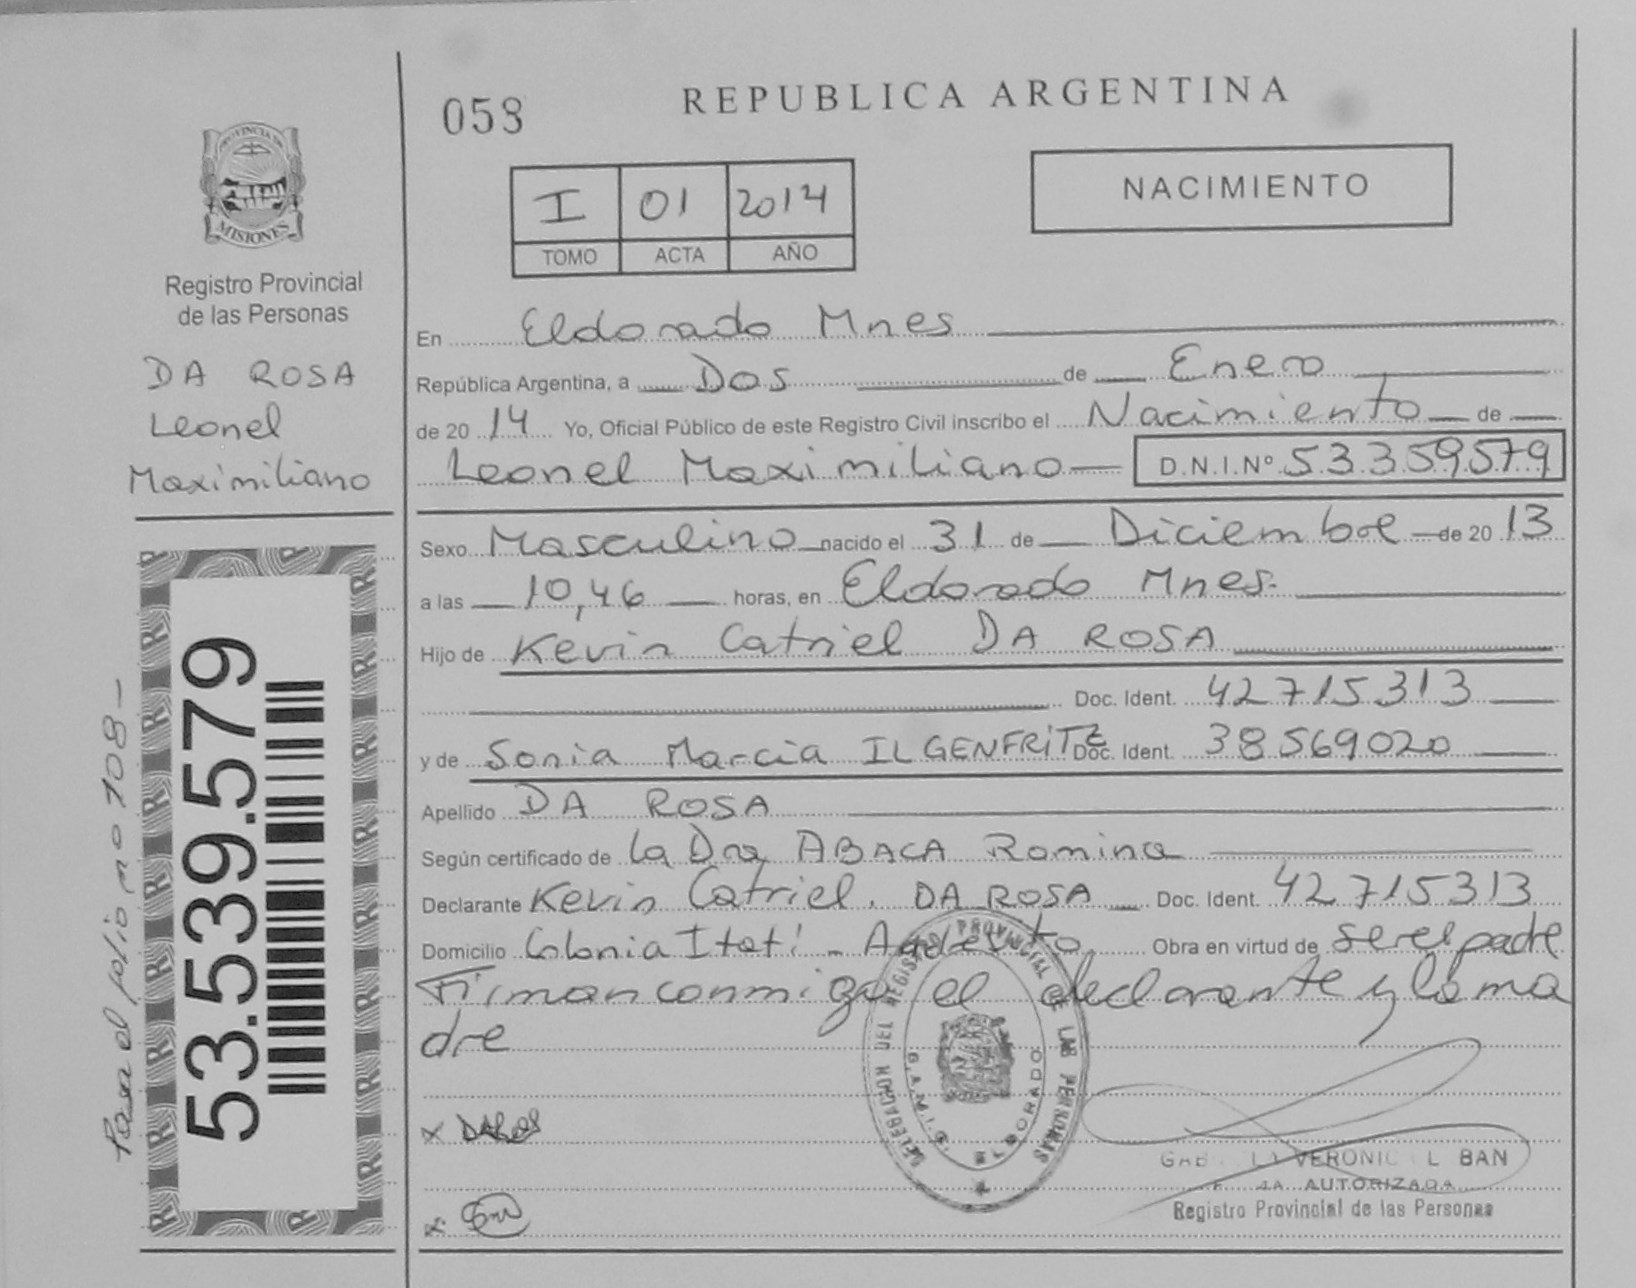 PROVINCIA DE
MISIONES
Registro Provincial
de las Personas
DA ROSA
Leonel
Maximiliano
53.539.579
Pasa al folio nº 108 -
058
REPUBLICA ARGENTINA
I 01 2014
TOMO ACTA AÑO
NACIMIENTO
En Eldorado Mnes
República Argentina, a Dos de Enero
de 20 14 Yo, Oficial Público de este Registro Civil inscribo el Nacimiento de
Leonel Maximiliano D.N.I.Nº 53359579
Sexo Masculino nacido el 31 de Diciembre de 20 13
a las 10,46 horas, en Eldorado Mnes.
Hijo de Kevin Catriel DA ROSA
Doc. Ident. 42715313
y de Sonia Marcia ILGENFRITZ Doc. Ident. 38569020
Apellido DA ROSA
Según certificado de La Dra ABACA Romina
Declarante Kevin Catriel. DA ROSA Doc. Ident. 42715313
Domicilio Colonia Itatí - Andresito Obra en virtud de ser el padre
Firman conmigo el declarante y la ma
dre
DELEGACION DEL REGISTRO PROVINCIAL DE LAS PERSONAS
ELDORADO
VERONIC BAN
AUTORIZADA
Registro Provincial de las Personas